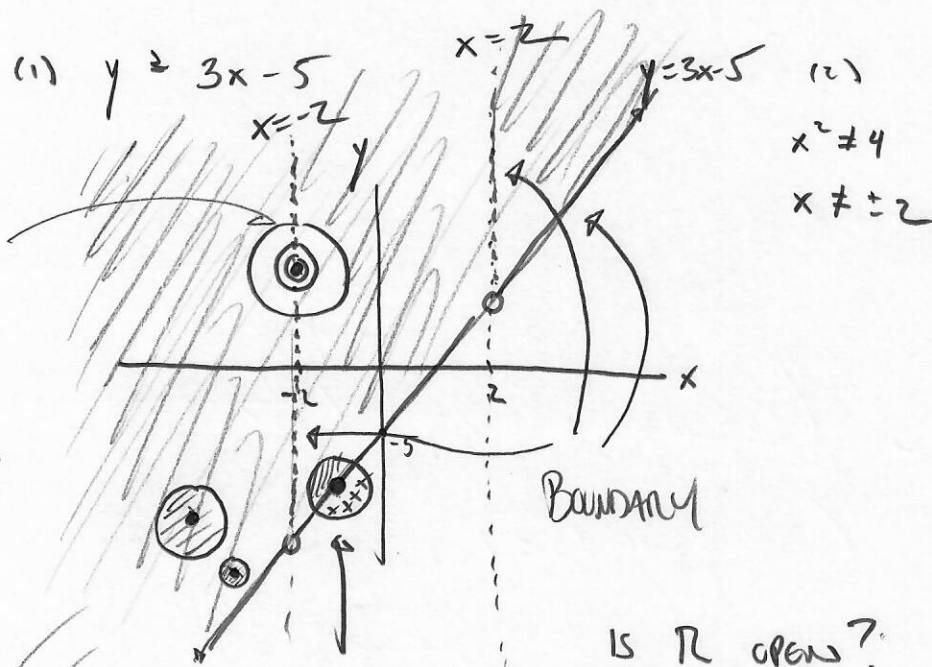 (1) y ≥ 3x - 5
x = 2
y = 3x - 5
(2)
x = -2
y
x² ≠ 4
x ≠ ± 2
x
-2
2
-5
BOUNDARY
IS R OPEN?